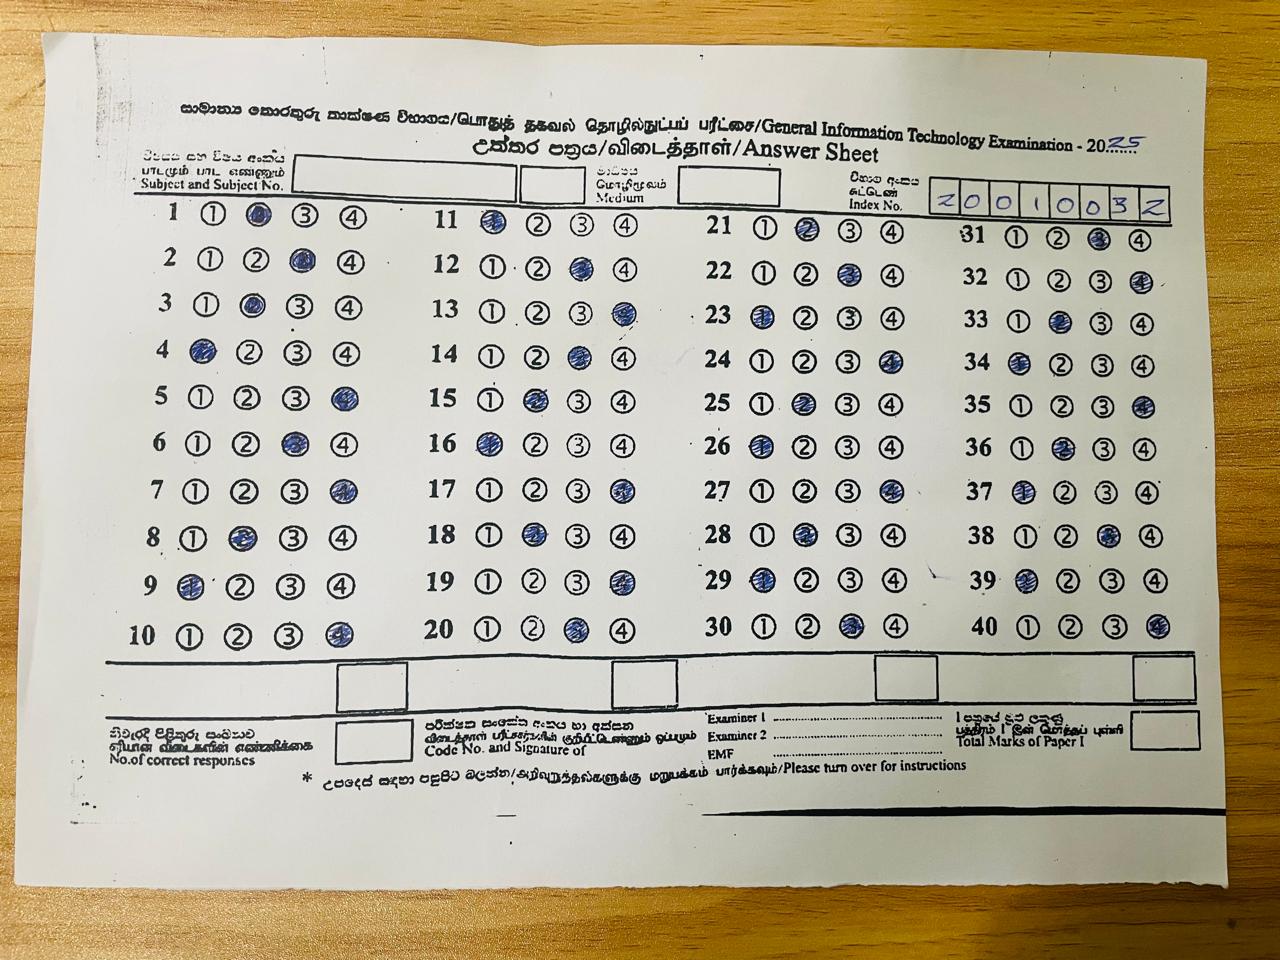 සාමාන්‍ය තොරතුරු තාක්ෂණ විභාගය/பொதுத் தகவல் தொழில்நுட்பப் பரீட்சை/General Information Technology Examination - 2025
උත්තර පත්‍රය/விடைத்தாள்/Answer Sheet
විෂයය සහ විෂය අංකය
பாடமும் பாட எண்ணும்
Subject and Subject No.
මාධ්‍යය
மொழிமூலம்
Medium
විභාග අංකය
சுட்டெண்
Index No.
2 0 0 1 0 0 3 2
1 ① ② ③ ④ 11 ① ② ③ ④ 21 ① ② ③ ④ 31 ① ② ③ ④
2 ① ② ③ ④ 12 ① ② ③ ④ 22 ① ② ③ ④ 32 ① ② ③ ④
3 ① ② ③ ④ 13 ① ② ③ ④ 23 ① ② ③ ④ 33 ① ② ③ ④
4 ① ② ③ ④ 14 ① ② ③ ④ 24 ① ② ③ ④ 34 ① ② ③ ④
5 ① ② ③ ④ 15 ① ② ③ ④ 25 ① ② ③ ④ 35 ① ② ③ ④
6 ① ② ③ ④ 16 ① ② ③ ④ 26 ① ② ③ ④ 36 ① ② ③ ④
7 ① ② ③ ④ 17 ① ② ③ ④ 27 ① ② ③ ④ 37 ① ② ③ ④
8 ① ② ③ ④ 18 ① ② ③ ④ 28 ① ② ③ ④ 38 ① ② ③ ④
9 ① ② ③ ④ 19 ① ② ③ ④ 29 ① ② ③ ④ 39 ① ② ③ ④
10 ① ② ③ ④ 20 ① ② ③ ④ 30 ① ② ③ ④ 40 ① ② ③ ④
නිවැරදි පිළිතුරු සංඛ්‍යාව
சரியான விடைகளின் எண்ணிக்கை
No.of correct responses
පරීක්ෂක සංකේත අංකය හා අත්සන
விடைத்தாள் பரீட்சகர்களின் குறியீட்டெண்ணும் ஒப்பமும்
Code No. and Signature of
Examiner 1
Examiner 2
EMF
I පත්‍රයේ මුළු ලකුණු
பத்திரம் I இன் மொத்தப் புள்ளி
Total Marks of Paper I
* උපදෙස් සඳහා පසුපිට බලන්න/அறிவுறுத்தல்களுக்கு மறுபக்கம் பார்க்கவும்/Please turn over for instructions